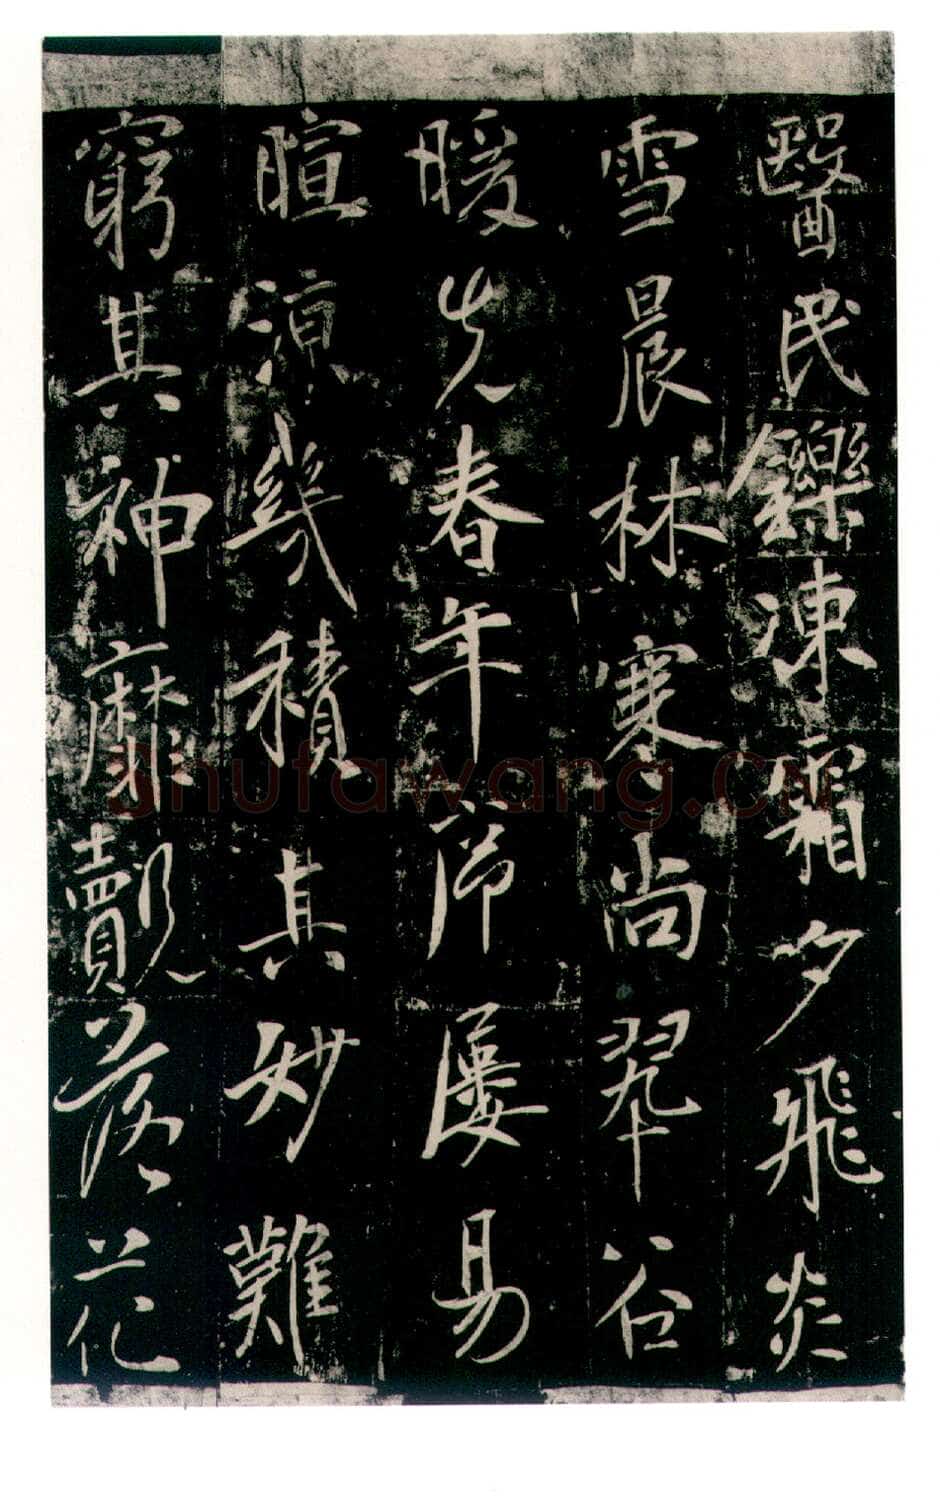 醫民鑠凍霜夕飛炎
雪晨林寒尚翠谷
暖先春年節屢易
暄涼幾積其妙難
窮其神靡覿落花
Shufawang.CN